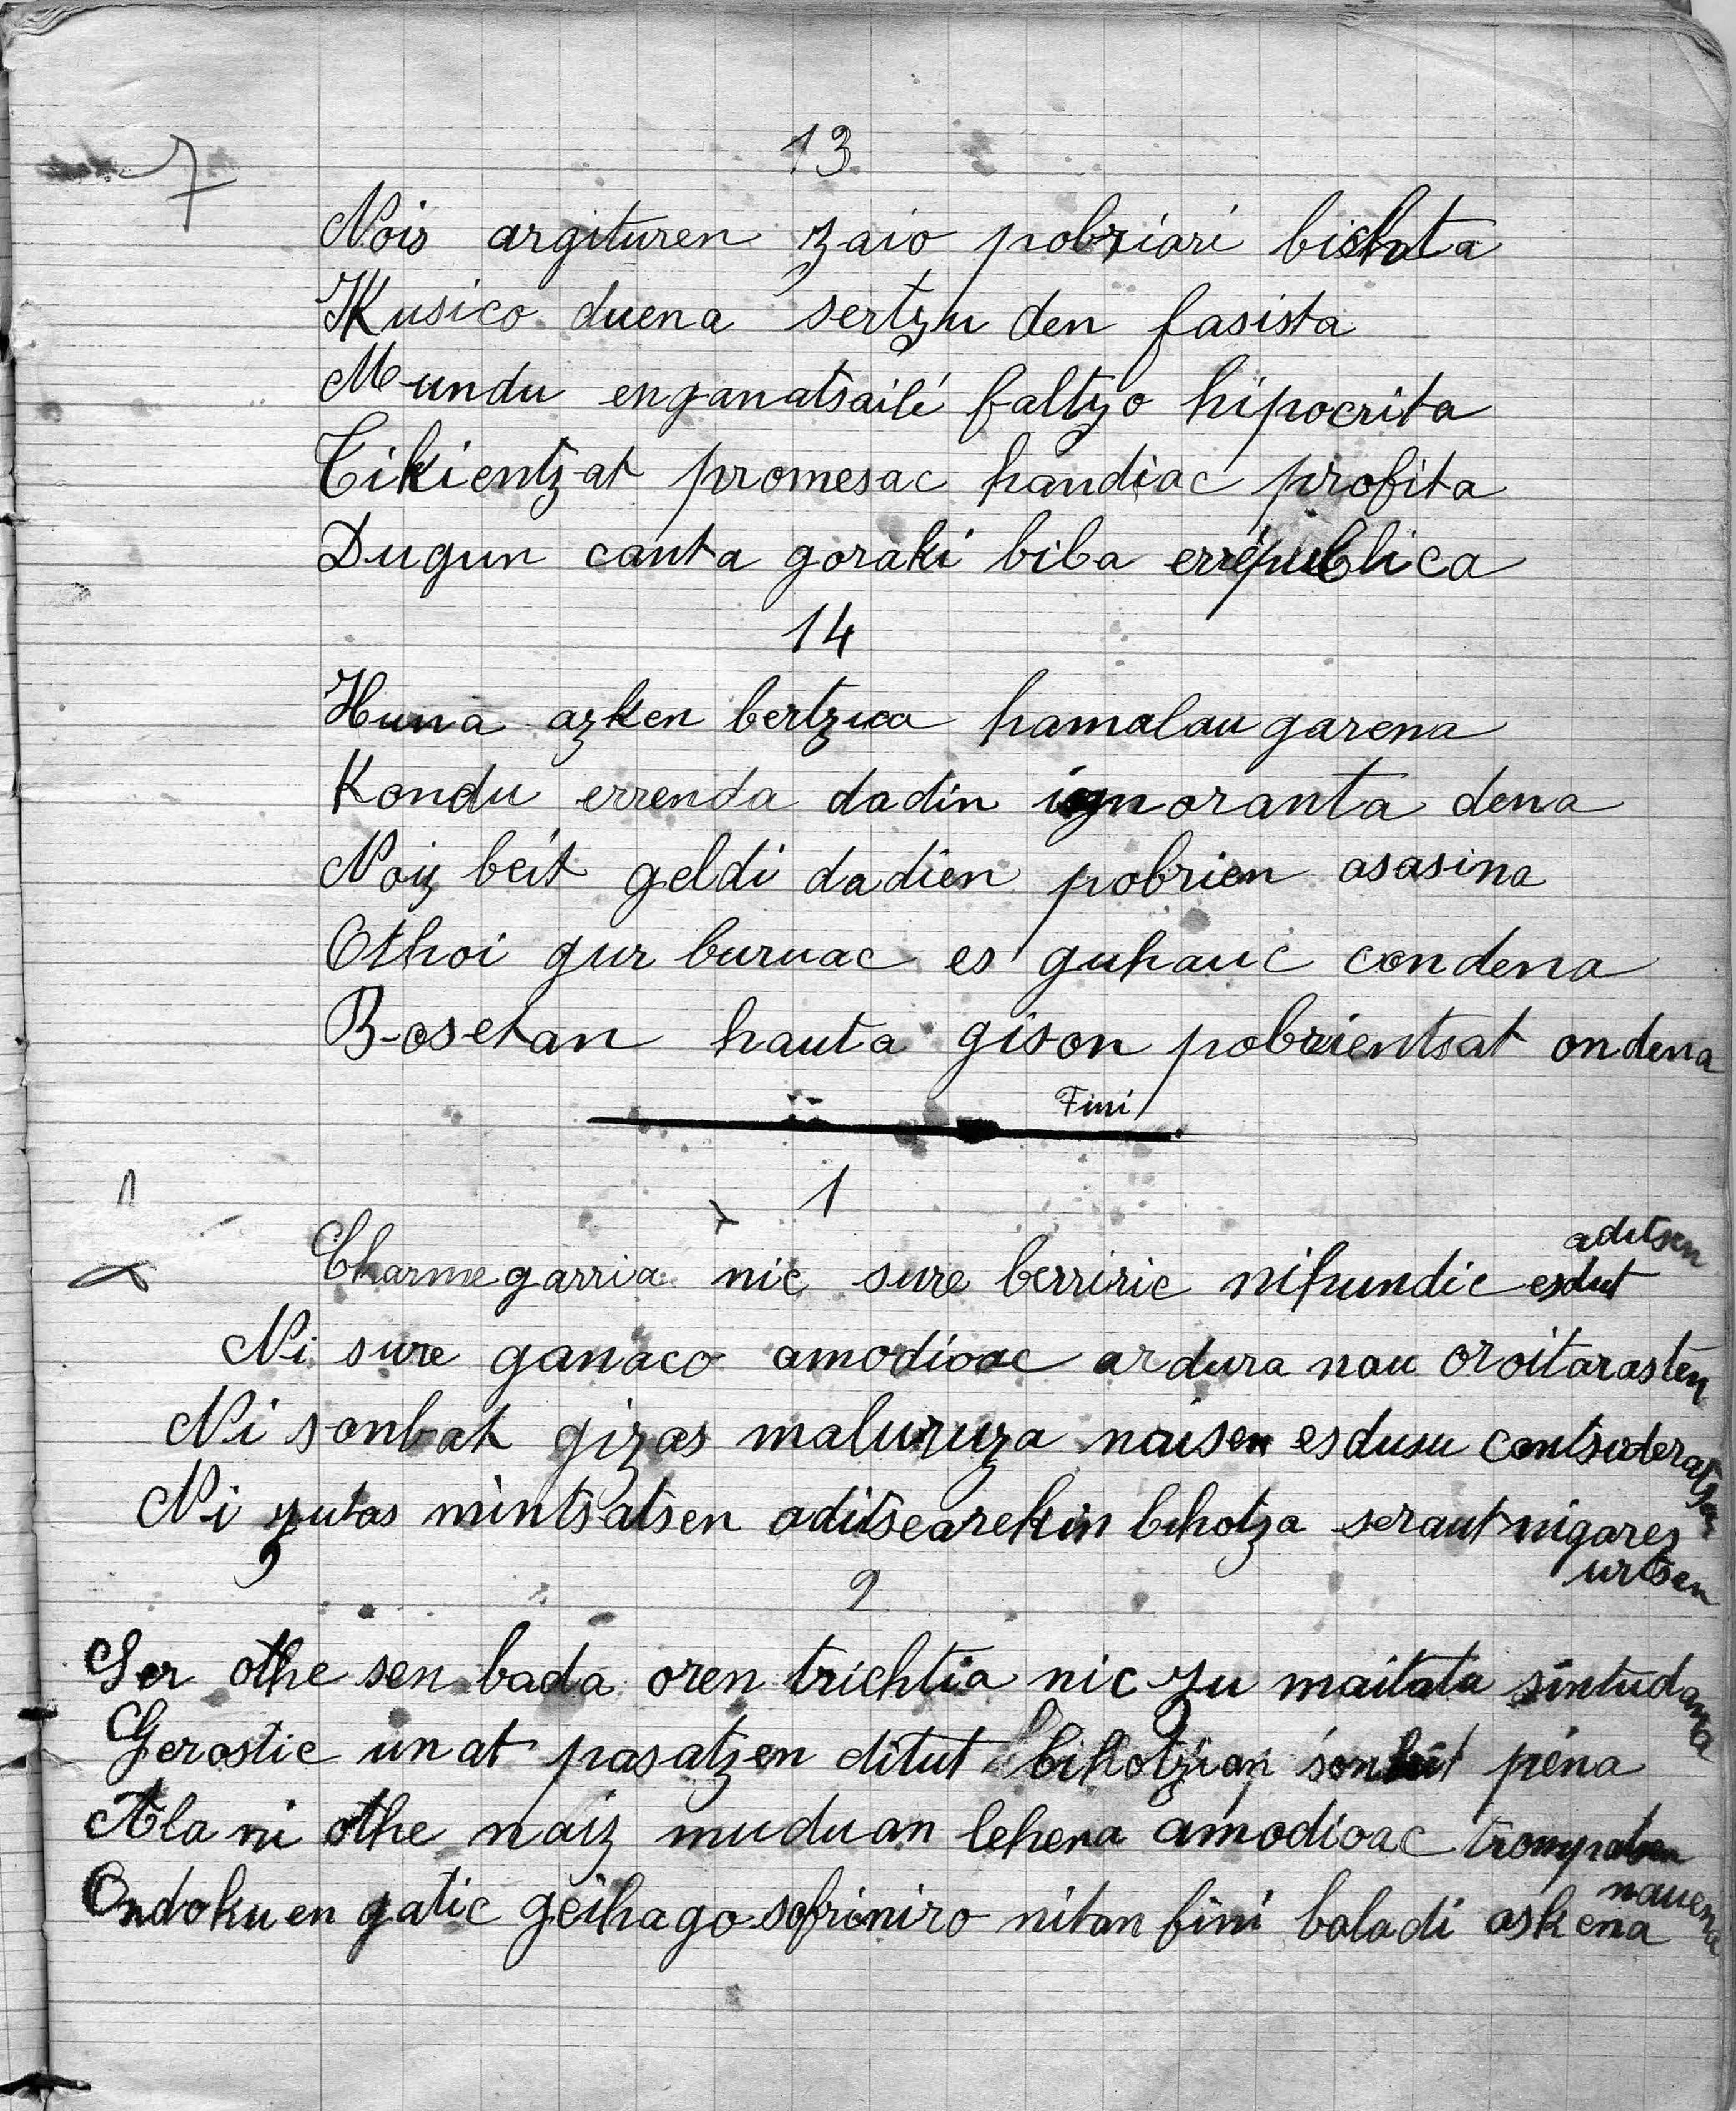 7
13
Nois argituren zaio pobriari bichta
Kusico duena sertzu den fasista
Mundu enganatsaile faltzo hipocrita
Tikientzat promesac handiac profita
Dugun canta goraki biba errépublica
14
Huna azken bertzua hamalau garena
Kondu errenda dadin ignoranta dena
Noiz beit geldi dadien pobrien asasina
Othoi gur buruac es guhauc condena
Bosetan hauta gison pobrientsat ondena
Fini
1
1
Charmegarria nic sure berriric nihundic esdut aditsen
Ni sure ganaco amodioac ardura nau oroitarasten
Ni sonbat gizas maluruza naisen esdusu contsideratsen
Ni zutas mintsatsen aditsearekin bihotza seraut nigarez
urtsen
2
Ser othe sen bada oren trichtia nic zu maitatu sintudana
Gerostic unat pasatzen ditut bihotzian sonbat péna
Ala ni othe naiz muduan lehena amodioac trompatzen
nauena
Ondokuen gatic geihago sofriniro nitan fini baladi askena